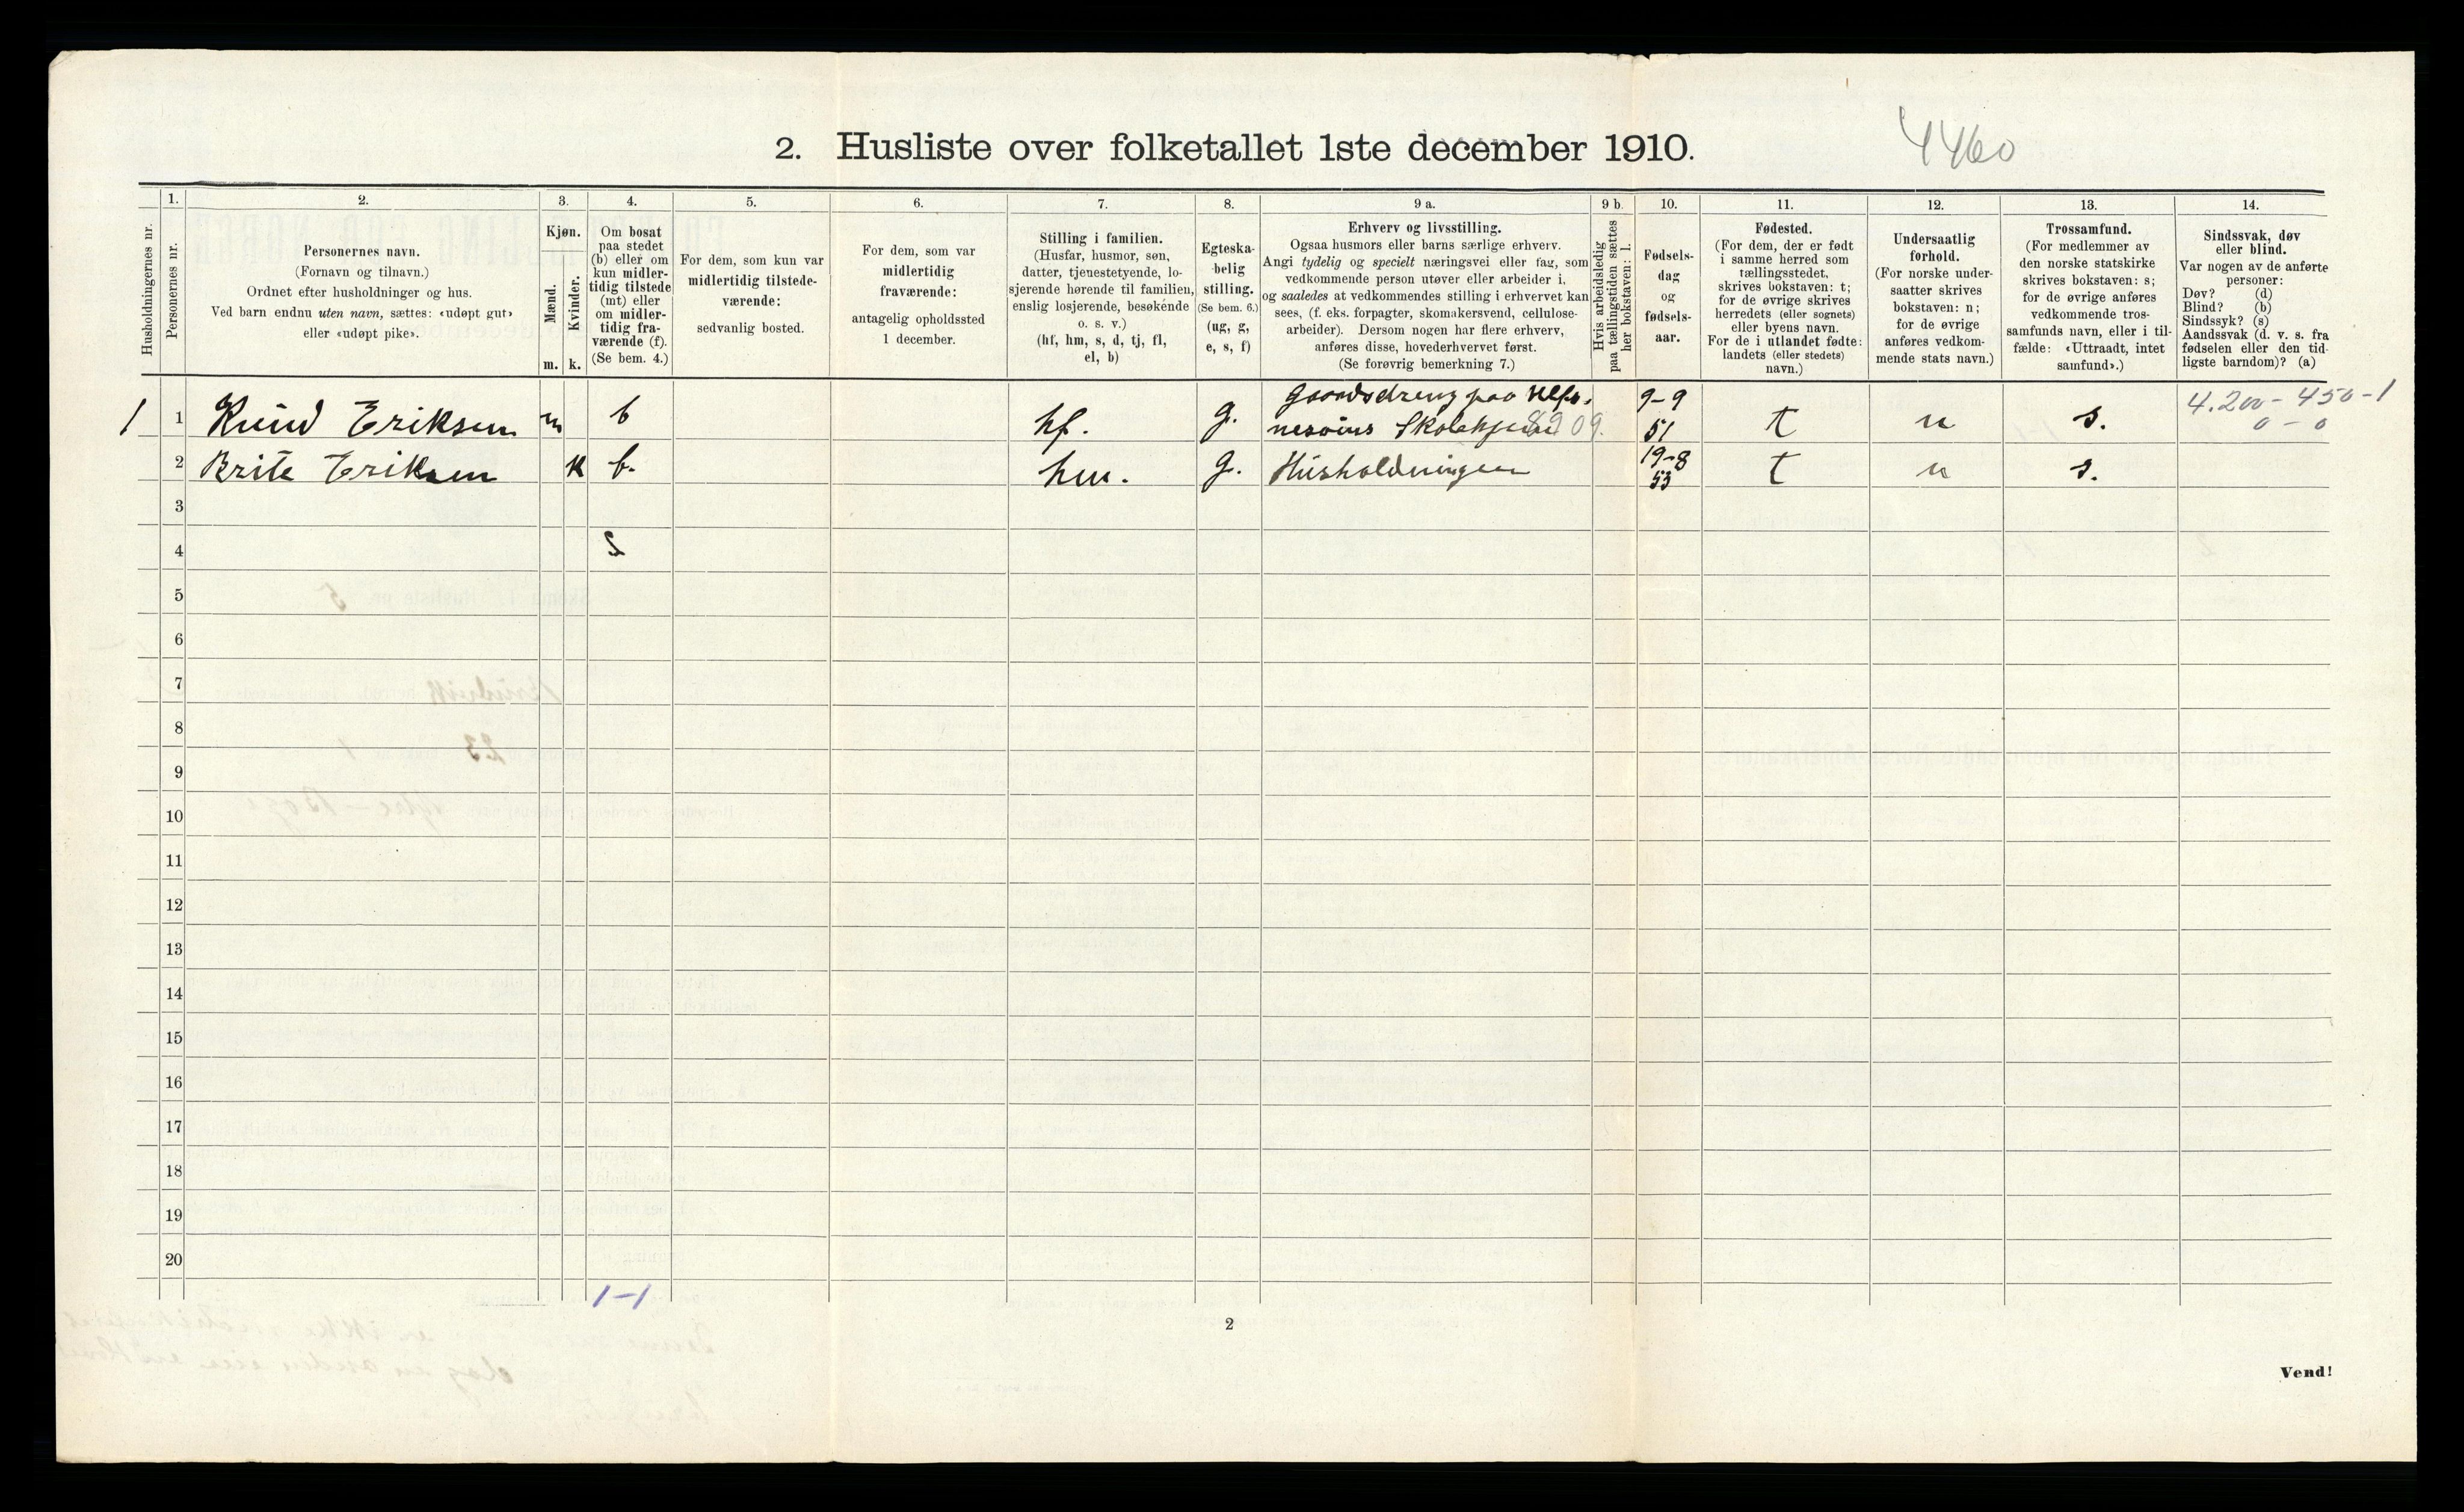 2. Husliste over folketallet 1ste december 1910.
4460
Husholdningernes nr.
1.
Personernes nr.
2.
Personernes navn.
(Fornavn og tilnavn.)
Ordnet efter husholdninger og hus.
Ved barn endnu uten navn, sættes: «udøpt gut»
eller «udøpt pike».
3.
Kjøn.
Mænd.
m.
Kvinder.
k.
4.
Om bosat
paa stedet
(b) eller om
kun midler-
tidig tilstede
(mt) eller
om midler-
tidig fra-
værende (f).
(Se bem. 4.)
5.
For dem, som kun var
midlertidig tilstede-
værende:
sedvanlig bosted.
6.
For dem, som var
midlertidig
fraværende:
antagelig opholdssted
1 december.
7.
Stilling i familien.
(Husfar, husmor, søn,
datter, tjenestetyende, lo-
sjerende hørende til familien,
enslig losjerende, besøkende
o. s. v.)
(hf, hm, s, d, tj, fl,
el, b)
8.
Egteska-
belig
stilling.
(Se bem. 6.)
(ug, g,
e, s, f)
9 a.
Erhverv og livsstilling.
Ogsaa husmors eller barns særlige erhverv.
Angi tydelig og specielt næringsvei eller fag, som
vedkommende person utøver eller arbeider i,
og saaledes at vedkommendes stilling i erhvervet kan
sees, (f. eks. forpagter, skomakersvend, cellulose-
arbeider). Dersom nogen har flere erhverv,
anføres disse, hovederhvervet først.
(Se forøvrig bemerkning 7.)
9 b.
Hvis arbeidsledig
paa tællingstiden sættes
her bokstaven: l.
10.
Fødsels-
dag
og
fødsels-
aar.
11.
Fødested.
(For dem, der er født
i samme herred som
tællingsstedet,
skrives bokstaven: t;
for de øvrige skrives
herredets (eller sognets)
eller byens navn.
For de i utlandet fødte:
landets (eller stedets)
navn.)
12.
Undersaatlig
forhold.
(For norske under-
saatter skrives
bokstaven: n;
for de øvrige
anføres vedkom-
mende stats navn.)
13.
Trossamfund.
(For medlemmer av
den norske statskirke
skrives bokstaven: s;
for de øvrige anføres
vedkommende tros-
samfunds navn, eller i til-
fælde: «Uttraadt, intet
samfund».)
14.
Sindssvak, døv
eller blind.
Var nogen av de anførte
personer:
Døv? (d)
Blind? (b)
Sindssyk? (s)
Aandssvak (d. v. s. fra
fødselen eller den tid-
ligste barndom)? (a)
1 1 Knud Eriksen m b hf. g. Gaardsdreng paa
Skolehjem 09. 9-9
51 t n s. 4.200 - 450 - 1
0 - 0
2 Brite Eriksen k b. hm. g. Husholdningen 19-8
53 t n s.
3
4
5
6
7
8
9
10
11
12
13
14
15
16
17
18
19
20
1-1
2
Vend!